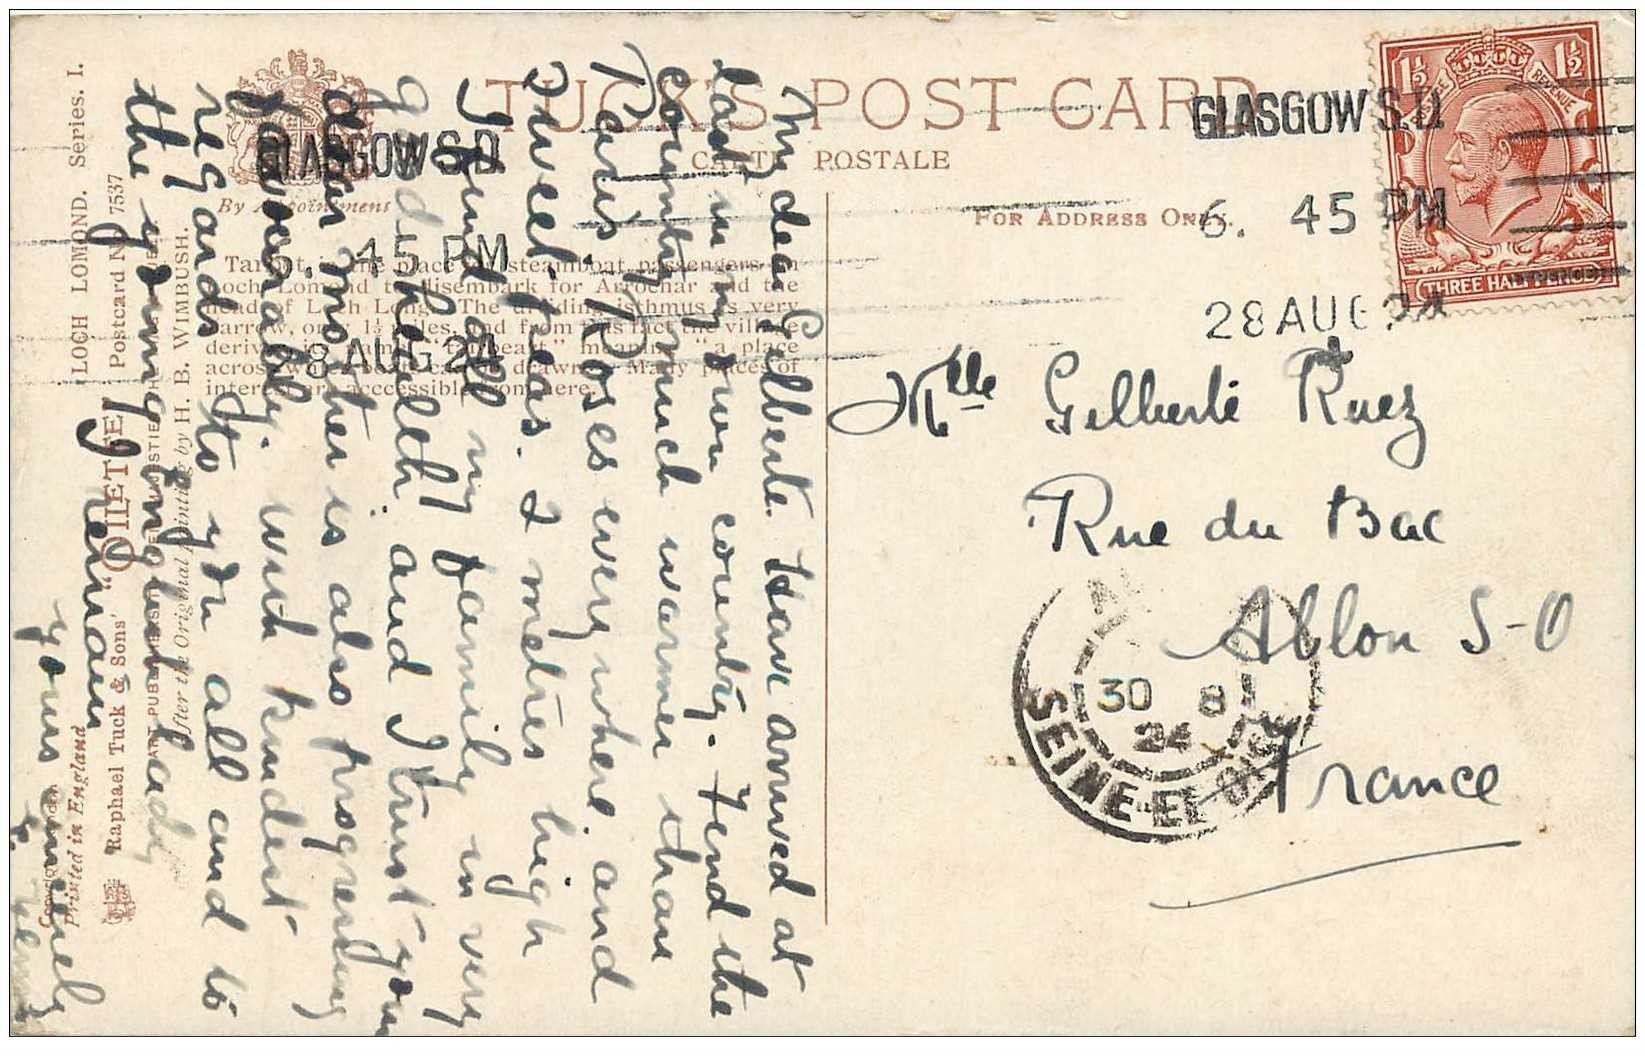 TUCK'S POST CARD
CARTE POSTALE
By Appointment
FOR ADDRESS ONLY.
GLASGOW S.D.
6. 45 PM
28 AUG 24
GLASGOW S.D.
6. 45 PM
28 AUG 24
THREE HALFPENCE
1½
1½
POSTAGE
REVENUE
Tarbet is the place for steamboat passengers on
Loch Lomond to disembark for Arrochar and the
head of Loch Long. The dividing isthmus is very
narrow, only 1½ miles, and from this fact the village
derives its name "tarbeart" meaning "a place
across which boats can be drawn." Many places of
interest are accessible from here.
My dear Gilberte. Have arrived at
last in my own country. Find the
country much warmer than
Paris. Roses everywhere. and
sweet-peas. 2 metres high
I find all my family in very
good health and I trust your
dear mother is also progressing
favourably. With kindest
regards to you all and to
the young English lady
I remain
yours sincerely
Mlle Gilberte Ruez
Rue du Bac
Ablon S-O
France
30 8
24
SEINE-ET-OISE
LOCH LOMOND. Series. I.
"OILETTE" Postcard No. 7537
After the Original Painting by H. B. WIMBUSH.
Raphael Tuck & Sons'
Printed in England